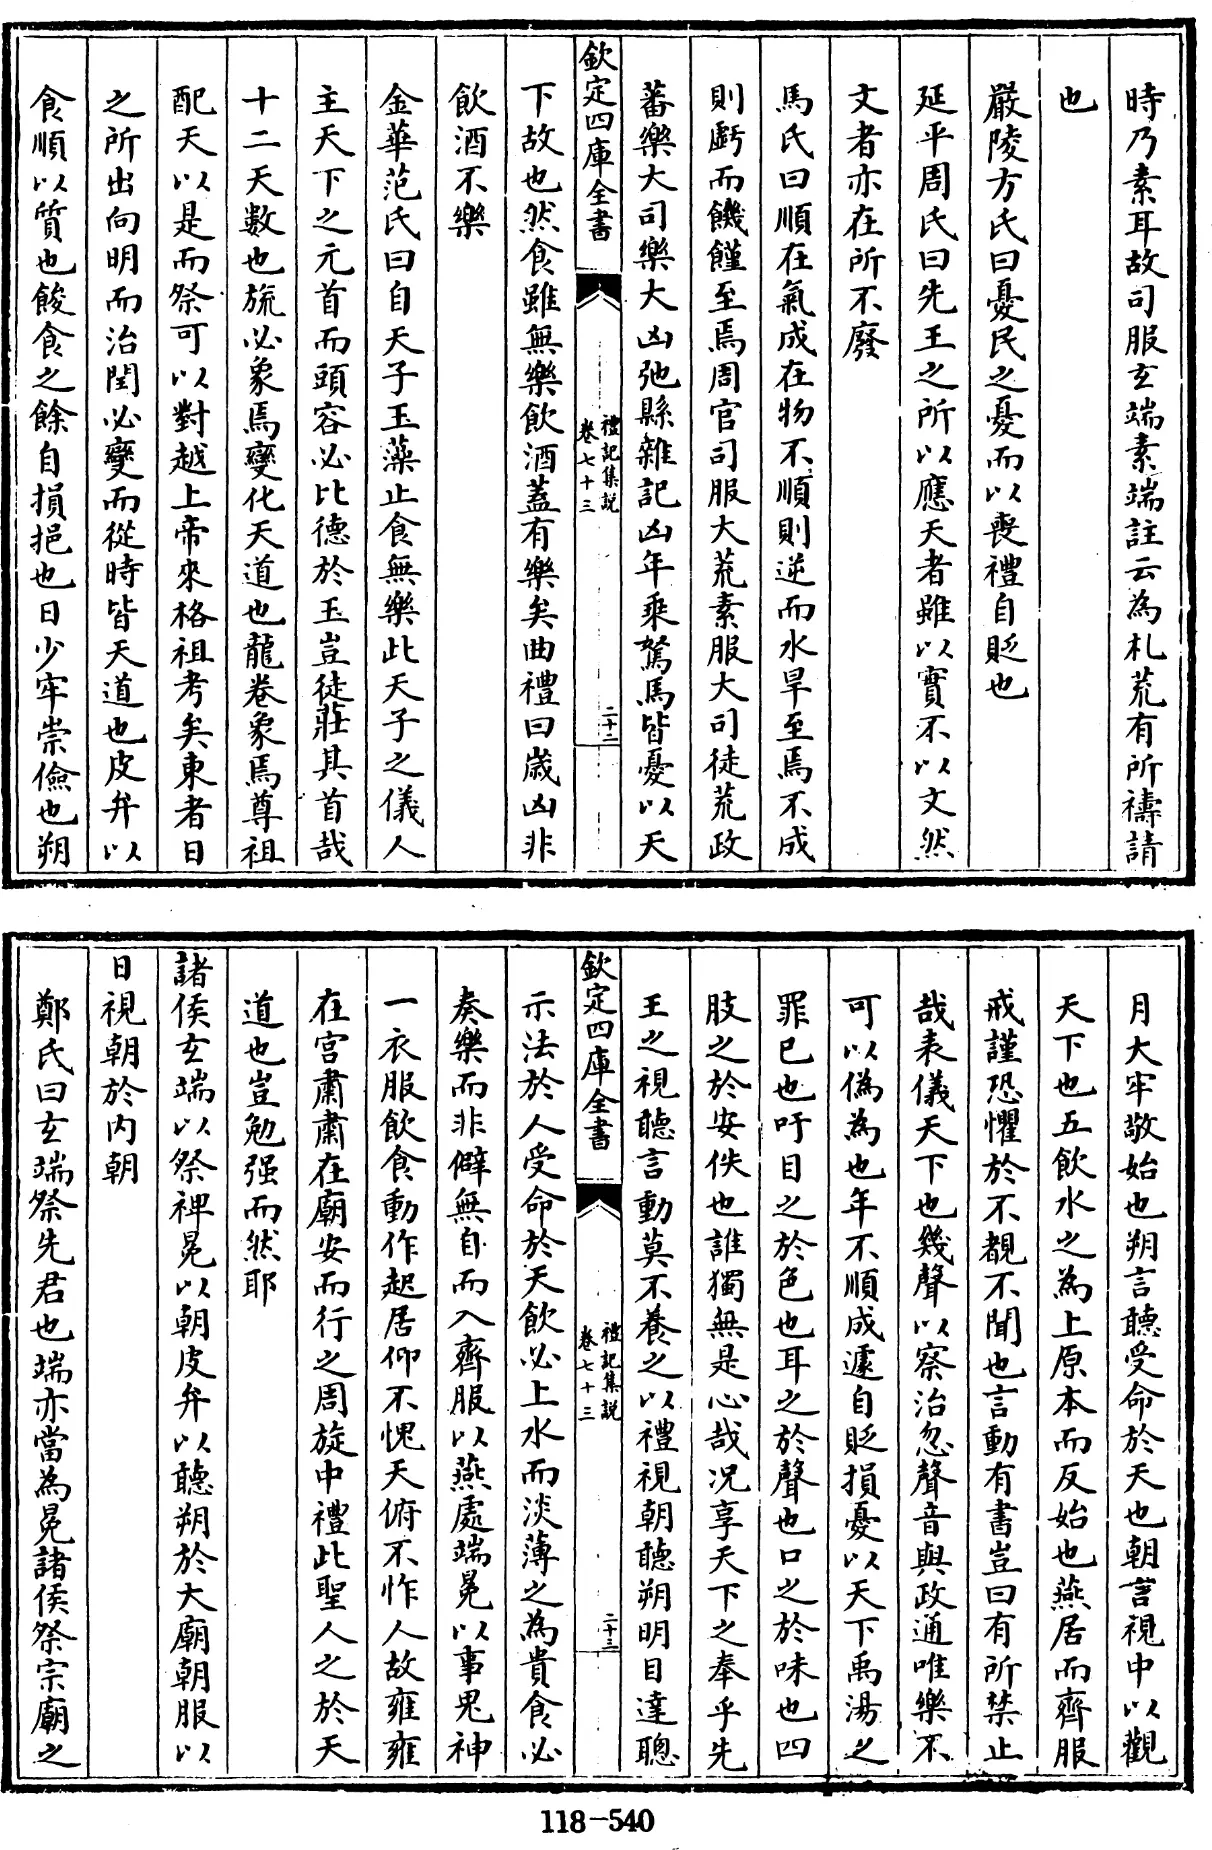 時乃素耳故司服玄端素端註云為札荒有所禱請
也
嚴陵方氏曰憂民之憂而以喪禮自貶也
延平周氏曰先王之所以應天者雖以實不以文然
文者亦在所不廢
馬氏曰順在氣成在物不順則逆而水旱至焉不成
則虧而饑饉至焉周官司服大荒素服大司徒荒政
蕃樂大司樂大凶弛縣雜記凶年乘駑馬皆憂以天
欽定四庫全書
禮記集說
卷七十三
二十二
下故也然食雖無樂飲酒蓋有樂矣曲禮曰歲凶非
飲酒不樂
金華范氏曰自天子玉藻止食無樂此天子之儀人
主天下之元首而頭容必比德於玉豈徒莊其首哉
十二天數也旒必象焉變化天道也龍卷象焉尊祖
配天以是而祭可以對越上帝來格祖考矣東者日
之所出向明而治閏必變而從時皆天道也皮弁以
食順以質也餕食之餘自損挹也日少牢崇儉也朔
月大牢敬始也朔言聽受命於天也朝言視中以觀
天下也五飲水之為上原本而反始也燕居而齊服
戒謹恐懼於不覩不聞也言動有書豈曰有所禁止
哉表儀天下也幾聲以察治忽聲音與政通唯樂不
可以偽為也年不順成遽自貶損憂以天下禹湯之
罪已也吁目之於色也耳之於聲也口之於味也四
肢之於安佚也誰獨無是心哉况享天下之奉乎先
王之視聽言動莫不養之以禮視朝聽朔明目達聰
欽定四庫全書
禮記集說
卷七十三
二十三
示法於人受命於天飲必上水而淡薄之為貴食必
奏樂而非僻無自而入齊服以燕處端冕以事鬼神
一衣服飲食動作起居仰不愧天俯不怍人故雍雍
在宮肅肅在廟安而行之周旋中禮此聖人之於天
道也豈勉强而然耶
諸侯玄端以祭裨冕以朝皮弁以聽朔於大廟朝服以
日視朝於內朝
鄭氏曰玄端祭先君也端亦當為冕諸侯祭宗廟之
118-540